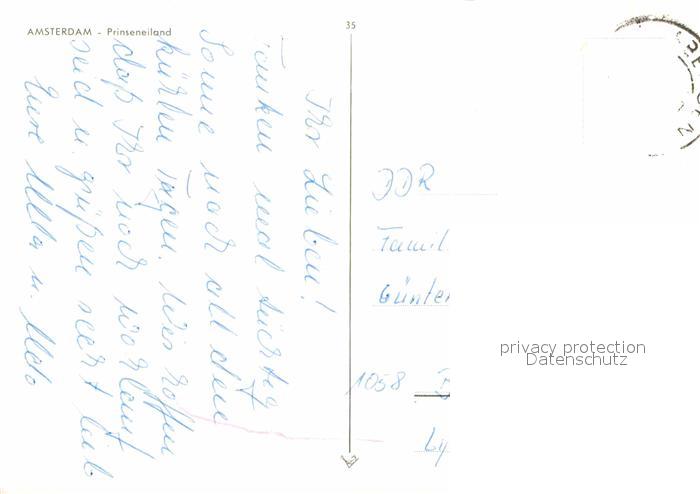 AMSTERDAM - Prinseneiland
35
Ihr Lieben!
Tanken mal tüchtig
Sonne nach all den
kühlen Tagen. Wir hoffen
daß Ihr noch wohlauf
seid u. grüßen
Eure Ulla u. Udo
DDR
Famil
Günter
1058 B
Ly
privacy protection
Datenschutz